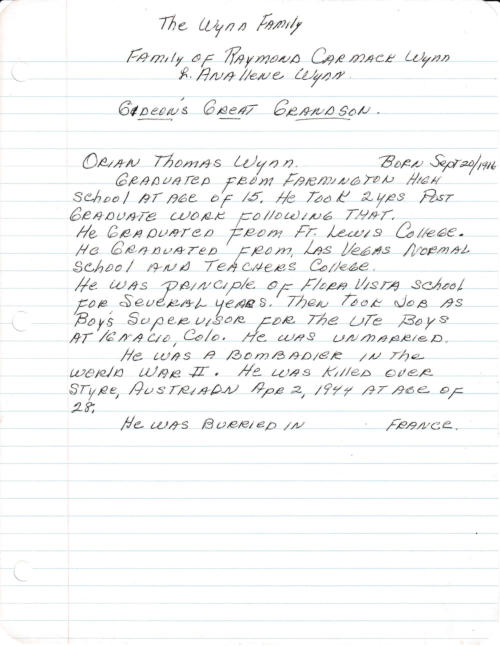 The Wynn Family
Family of Raymond Carmack Wynn
& Anallene Wynn
Gideon's Great Grandson.
Orian Thomas Wynn. Born Sept 20/1916
Graduated from Farmington High
School at age of 15. He took 2 yrs Post
Graduate work following that.
He graduated from Ft. Lewis College.
He graduated from, Las Vegas Normal
School and Teachers College.
He was principle of Flora Vista School
for several years. Then took job as
Boy's Supervisor for the Ute Boys
at Ignacio, Colo. He was unmarried.
He was a bombadier in the
World War II. He was killed over
Styre, Austria on Apr 2, 1944 at age of
28.
He was burried in France.